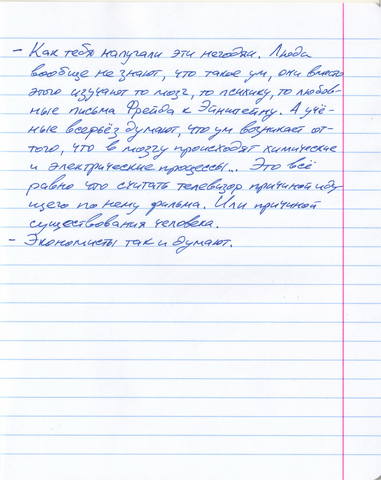 - Как тебя напугали эти негодяи. Люди
вообще не знают, что такое ум, они вместо
этого изучают то мозг, то психику, то любов-
ные письма Фрейда к Эйнштейну. А учё-
ные всерьёз думают, что ум возникает от-
того, что в мозгу происходят химические
и электрические процессы... Это всё
равно что считать телевизор причиной иду-
щего по нему фильма. Или причиной
существования человека.
- Экономисты так и думают.